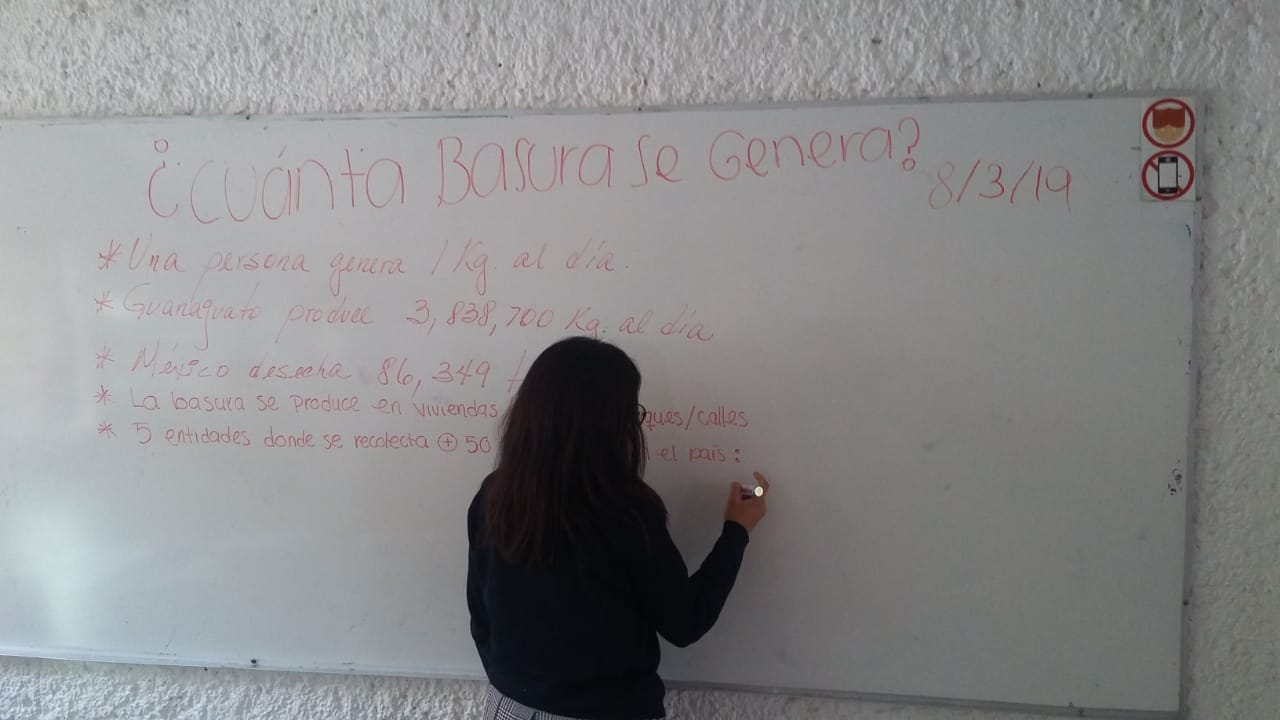 ¿Cuánta Basura se Genera?
8/3/19
* Una persona genera 1 Kg. al día.
* Guanaguato produce 3,838,700 Kg. al día.
* México desecha 86,349
* La basura se produce en viviendas ques/calles
* 5 entidades donde se recolecta ⊕ 50 el país: